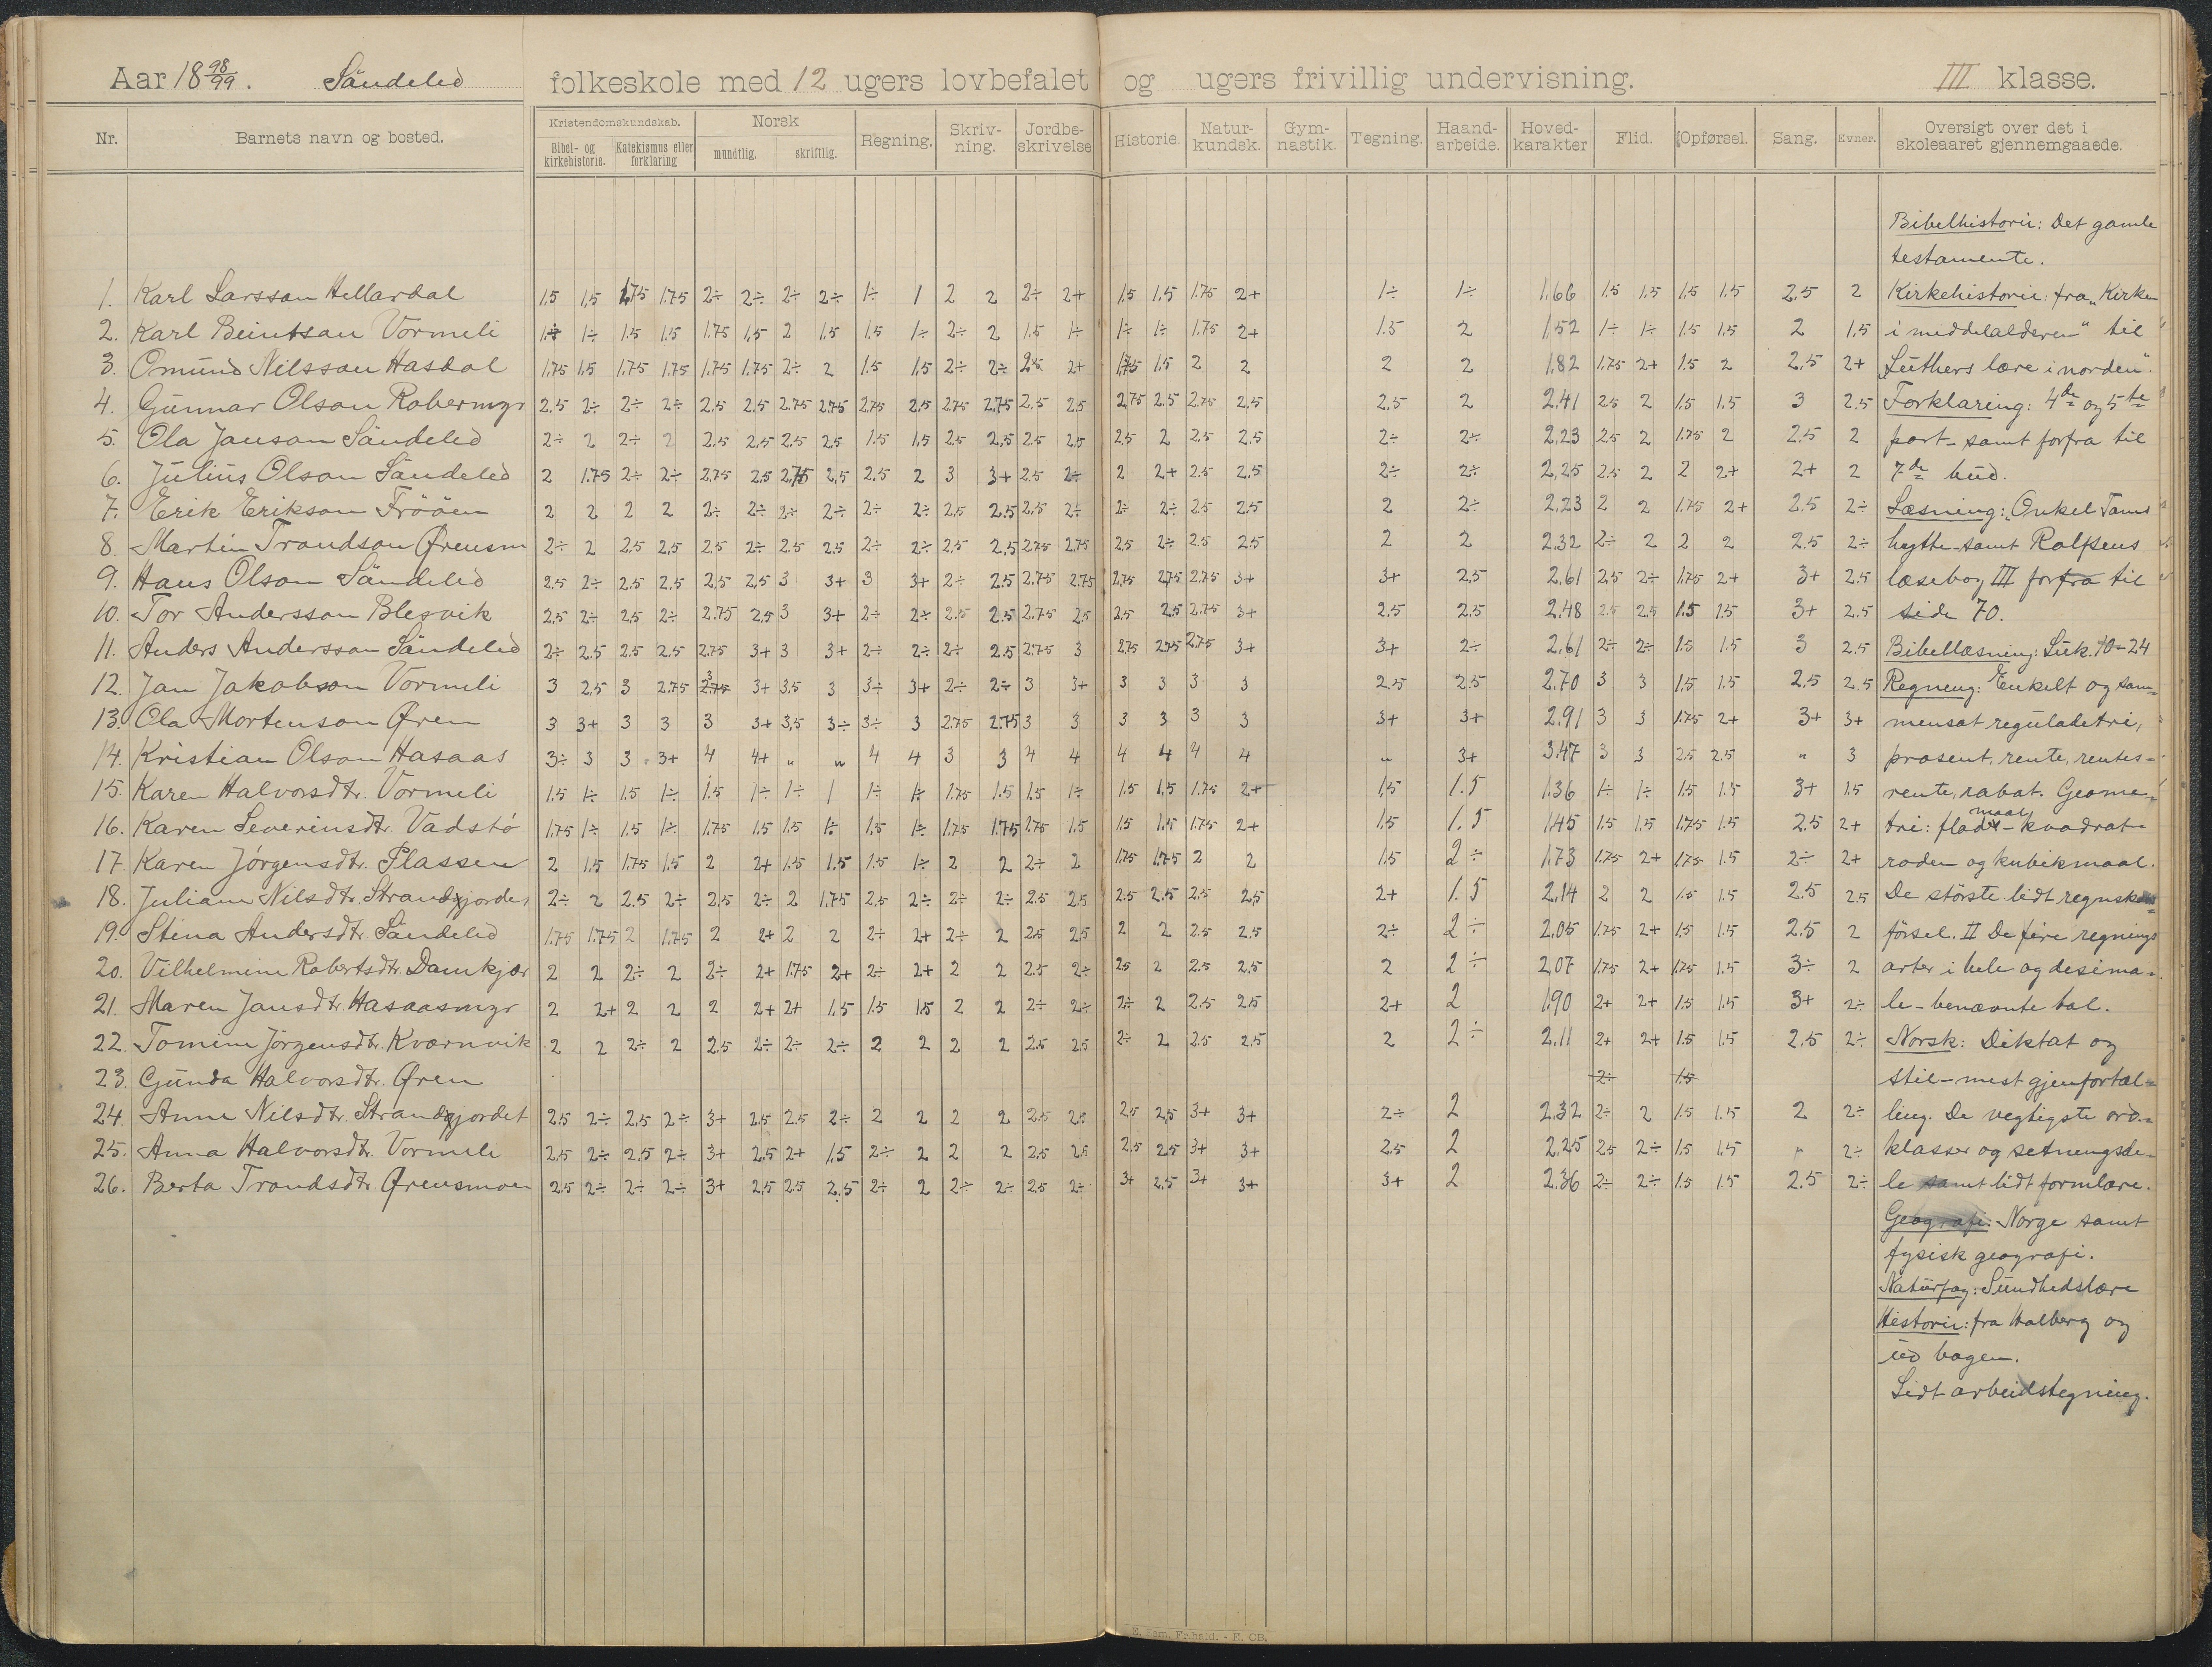 Aar 18 98/99. Søndeled folkeskole med 12 ugers lovbefalet og ugers frivillig undervisning. III klasse.
Nr. Barnets navn og bosted. Kristendomskundskab. Bibel- og kirkehistorie. Katekismus eller forklaring Norsk mundtlig. skriftlig. Regning. Skriv- ning. Jordbe- skrivelse Historie. Natur- kundsk. Gym- nastik. Tegning. Haand- arbeide. Hoved- karakter Flid. Opførsel. Sang. Evner. Oversigt over det i skoleaaret gjennemgaaede.
Bibelhistorie: Det gamle
testamente.
1. Karl Larsson Hellardal 1.5 1.5 1.75 1.75 2÷ 2÷ 2÷ 2÷ 1÷ 1 2 2 2÷ 2+ 1.5 1.5 1.75 2+ 1÷ 1÷ 1.66 1.5 1.5 1.5 1.5 2.5 2 Kirkehistorie: fra "Kirken
2. Karl Beintson Vormeli 1÷ 1÷ 1.5 1.5 1.75 1.5 2 1.5 1.5 1÷ 2÷ 2 1.5 1÷ 1÷ 1÷ 1.75 2+ 1.5 2 1.52 1÷ 1÷ 1.5 1.5 2 1.5 i middelalderen" til
3. Omund Nilsson Hasdal 1.75 1.5 1.75 1.75 1.75 1.75 2÷ 2 1.5 1.5 2÷ 2÷ 2.5 2+ 1.75 1.5 2 2 2 2 1.82 1.75 2+ 1.5 2 2.5 2+ "Luthers lære i norden".
4. Gunnar Olson Robermyr 2.5 2÷ 2÷ 2÷ 2.5 2.5 2.75 2.75 2.75 2.5 2.75 2.75 2.5 2.5 2.75 2.5 2.75 2.5 2.5 2 2.41 2.5 2 1.5 1.5 3 2.5 Forklaring: 4de og 5te
5. Ola Janson Søndeled 2÷ 2 2÷ 2 2.5 2.5 2.5 2.5 1.5 1.5 2.5 2.5 2.5 2.5 2.5 2 2.5 2.5 2÷ 2÷ 2.23 2.5 2 1.75 2 2.5 2 part - samt forfra til
6. Julius Olson Søndeled 2 1.75 2÷ 2÷ 2.75 2.5 2.75 2.5 2.5 2 3 3+ 2.5 2÷ 2 2+ 2.5 2.5 2÷ 2÷ 2.25 2.5 2 2 2+ 2+ 2 7de bud.
7. Erik Erikson Frøöen 2 2 2 2 2÷ 2÷ 2÷ 2÷ 2÷ 2÷ 2.5 2.5 2.5 2÷ 2÷ 2÷ 2.5 2.5 2 2÷ 2.23 2 2 1.75 2+ 2.5 2÷ Læsning: "Onkel Toms
8. Martin Trondson Ørensm 2÷ 2 2.5 2.5 2.5 2÷ 2.5 2.5 2÷ 2÷ 2.5 2.5 2.75 2.75 2.5 2÷ 2.5 2.5 2 2 2.32 2÷ 2 2 2 2.5 2÷ hytte - samt Rolfsens
9. Hans Olson Søndeled 2.5 2÷ 2.5 2.5 2.5 2.5 3 3+ 3 3+ 2÷ 2.5 2.75 2.75 2.75 2.75 2.75 3+ 3+ 2.5 2.61 2.5 2÷ 1.75 2+ 3+ 2.5 læsebog III forfra til
10. Tor Andersson Blesvik 2.5 2÷ 2.5 2÷ 2.75 2.5 3 3+ 2÷ 2÷ 2.5 2.5 2.75 2.5 2.5 2.5 2.75 3+ 2.5 2.5 2.48 2.5 2.5 1.5 1.5 3+ 2.5 side 70.
11. Anders Andersson Søndeled 2÷ 2.5 2.5 2.5 2.75 3+ 3 3+ 2÷ 2÷ 2÷ 2.5 2.75 3 2.75 2.75 2.75 3+ 3+ 2÷ 2.61 2÷ 2÷ 1.5 1.5 3 2.5 Bibellæsning: Luk. 10-24
12. Jan Jakobson Vormeli 3 2.5 3 2.75 3 2.75 3+ 3.5 3 3÷ 3+ 2÷ 2÷ 3 3+ 3 3 3 3 2.5 2.5 2.70 3 3 1.5 1.5 2.5 2.5 Regning: Enkelt og sam=
13. Ola Mortenson Øren 3 3+ 3 3 3 3+ 3.5 3÷ 3÷ 3 2.75 2.75 3 3 3 3 3 3 3+ 3+ 2.91 3 3 1.75 2+ 3+ 3+ mensat reguladetri,
14. Kristian Olson Hasaas 3÷ 3 3 3+ 4 4+ " " 4 4 3 3 4 4 4 4 4 4 " 3+ 3.47 3 3 2.5 2.5 " 3 prosent, rente, rentes=
15. Karen Halvorsdtr. Vormeli 1.5 1÷ 1.5 1÷ 1.5 1÷ 1÷ 1 1÷ 1÷ 1.75 1.5 1.5 1÷ 1.5 1.5 1.75 2+ 1.5 1.5 1.36 1÷ 1÷ 1.5 1.5 3+ 1.5 rente, rabat. Geome=
16. Karen Severinsdtr. Vadstø 1.75 1÷ 1.5 1÷ 1.75 1.5 1.5 1÷ 1.5 1÷ 1.75 1.75 2.75 1.5 1.5 1.5 1.75 2+ 1.5 1.5 1.45 1.5 1.5 1.75 1.5 2.5 2+ tri: flademaal - kvadrat=
17. Karen Jørgensdtr. Plassen 2 1.5 1.75 1.5 2 2+ 1.5 1.5 1.5 1÷ 2 2 2÷ 2 1.75 1.75 2 2 1.5 2÷ 1.73 1.75 2+ 1.75 1.5 2÷ 2+ roden og kubikmaal.
18. Juliane Nilsdtr. Strandgjordet 2÷ 2 2.5 2÷ 2.5 2÷ 2 1.75 2.5 2÷ 2÷ 2÷ 2.5 2.5 2.5 2.5 2.5 2.5 2+ 1.5 2.14 2 2 1.5 1.5 2.5 2.5 De største lidt regnskabs=
19. Stina Andersdtr. Søndeled 1.75 1.75 2 1.75 2 2+ 2 2 2÷ 2+ 2÷ 2 2.5 2.5 2 2 2.5 2.5 2÷ 2÷ 2.05 1.75 2+ 1.5 1.5 2.5 2 førsel. II De fire regnings
20. Vilhelmine Robertsdtr. Damkjær 2 2 2÷ 2 2÷ 2+ 1.75 2+ 2÷ 2+ 2 2 2.5 2÷ 2.5 2 2.5 2.5 2 2÷ 2.07 1.75 2+ 1.75 1.5 3÷ 2 arter i hele og desima=
21. Maren Jansdtr. Hasaasmyr 2 2+ 2 2 2 2+ 2+ 1.5 1.5 1.5 2 2 2÷ 2÷ 2÷ 2 2.5 2.5 2+ 2 1.90 2+ 2+ 1.5 1.5 3+ 2÷ le - benævnte tal.
22. Tomine Jørgensdtr. Kvarnvik 2 2 2÷ 2 2.5 2÷ 2÷ 2÷ 2 2 2 2 2.5 2.5 2÷ 2 2.5 2.5 2 2÷ 2.11 2+ 2+ 1.5 1.5 2.5 2÷ Norsk: Diktat og
23. Gunda Halvorsdtr. Øren 2÷ 1.5 stil - mest gjenfortæl=
24. Anne Nilsdtr. Strandgjordet 2.5 2÷ 2.5 2÷ 3+ 2.5 2.5 2÷ 2 2 2 2 2.5 2.5 2.5 2.5 3+ 3+ 2÷ 2 2.32 2÷ 2 1.5 1.5 2 2÷ ling. De vegtigste ord=
25. Anna Halvorsdtr. Vormeli 2.5 2÷ 2.5 2÷ 3+ 2.5 2+ 1.5 2÷ 2 2 2 2.5 2.5 2.5 2.5 3+ 3+ 2.5 2 2.25 2.5 2÷ 1.5 1.5 " 2÷ klasser og setningsde=
26. Berta Trondsdtr. Ørensmoen 2.5 2÷ 2÷ 2÷ 3+ 2.5 2.5 2.5 2÷ 2 2÷ 2÷ 2.5 2÷ 3+ 2.5 3+ 3+ 3+ 2 2.36 2÷ 2÷ 1.5 1.5 2.5 2÷ le samt lidt formlære.
Geografi: Norge samt
fysisk geografi.
Naturfag: Sundhedslære
Historie: fra Halberg og
ud bogen.
Lidt arbeidstegning.
E. Sem. Fr.hald. - E. CB.